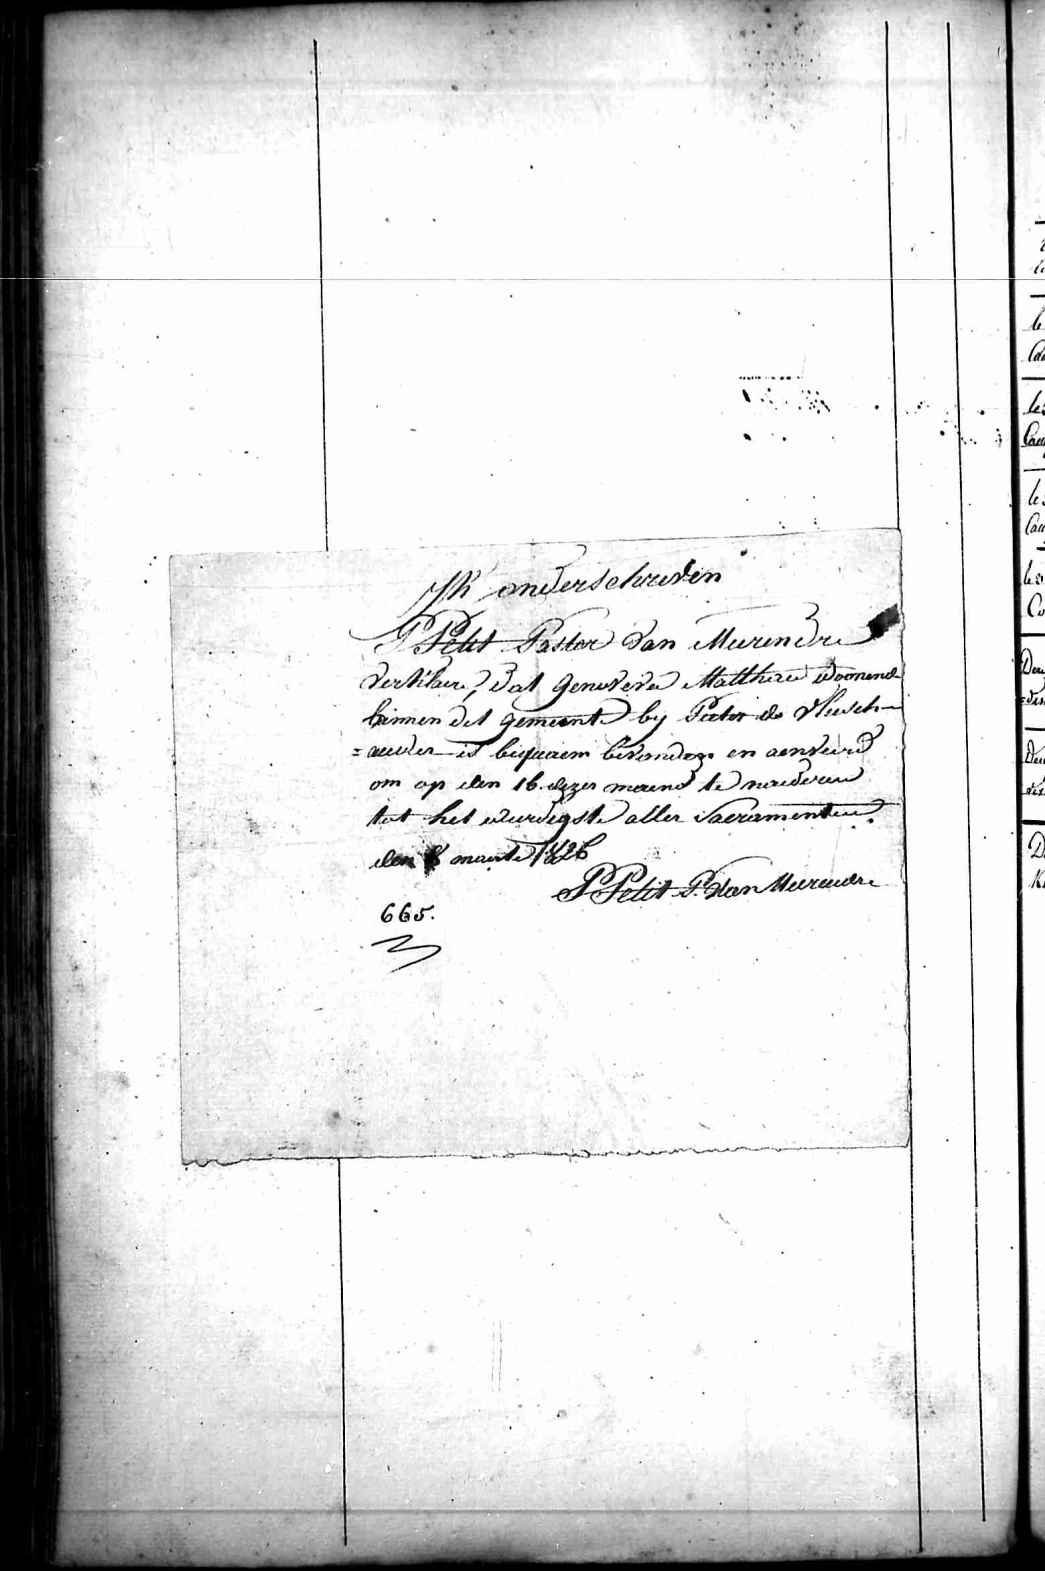 Ik onderschreven
P Petit Pastor van Meirendre
Verklaere, dat Genoveva Matthieu Woonende
binnen dit gemeente by Pieter de Vleesch-
=auwer is bequaem bevonden en aenveird
om op den 16 dezer maend te naederen
tot het weirdigste aller Sacramenten.
den 8 maerte 1826
P Petit P. van Meirendre
665.